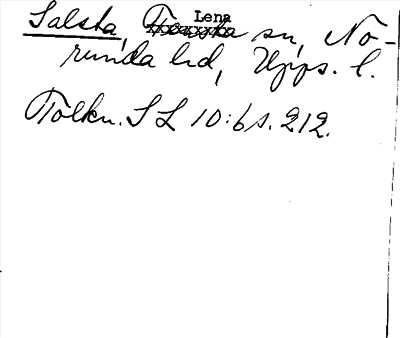 Salsta, Lena sn, No-
runda hd, Upps. l.
Tolkn. SL 10:6 s. 212.